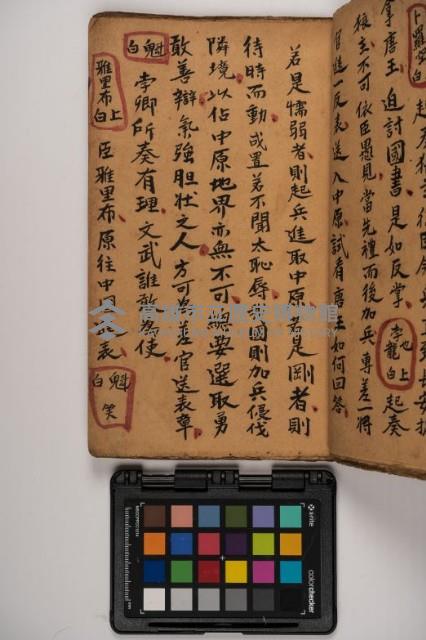 卜羅安白 起
拿唐王 迫討國書 是如反掌 李龍也上白 起奏
狼主不可 依臣愚見 當先禮而後加兵 專差一將
官進一反表 送入中原 試看唐王如何回答
若是懦弱者 則起兵進取中原 若是剛者 則
待時而動 或置若不聞 太恥辱 國則加兵侵伐
隣境 以佔中原地界 亦無不可 無要選取勇
敢善辯 氣強胆壯之人 方可為差官 送表章
魁白 李卿所奏有理 文武誰敢為使
雅里布上白 臣雅里布 原往中 表 魁白 笑
高雄市立歷史博物館
xrite
colorchecker